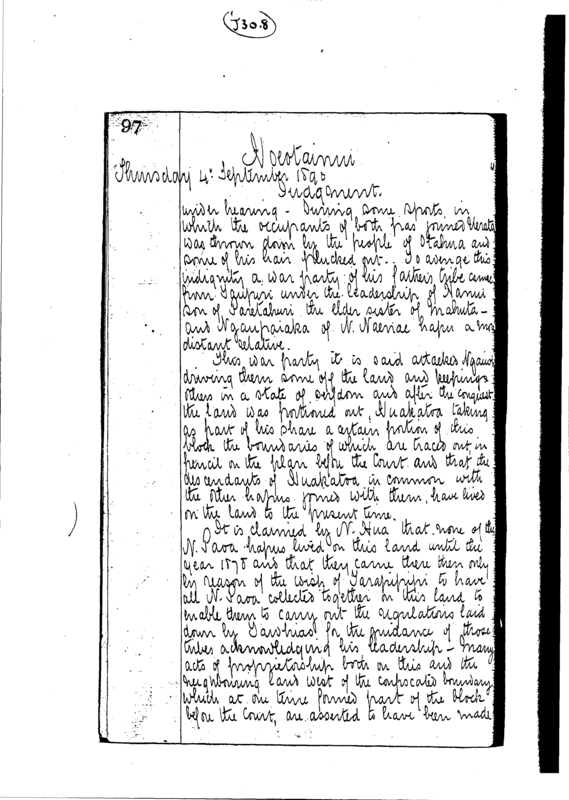 J30.8
97
Hoeotainui
Thursday 4th September 1890
Judgment.
under hearing - During some sports in
which the occupants of both pas joined Wereta
was thrown down by the people of Otahua and
some of his hair plucked out. To avenge this
indignity a war party of his father's tribe came
from Taupiri under the leadership of Nanui
son of Paretahuri the elder sister of Mahuta -
and Ngaupaiaka of N. Naeriae hapu a more
distant relative.
This war party it is said attacked
driving them some off the land and keeping
others in a state of serfdom and after the conquest
the land was portioned out, Huakatoa taking
as part of his share a certain portion of this
block the boundaries of which are traced out in
pencil on the plan before the Court and that the
descendants of Huakatoa in common with
the other hapus joined with them, have lived
on the land to the present time.
It is claimed by N. Hua that none of the
N. Paoa hapus lived on this land until the
year 1878 and that they came there then only
by reason of the wish of Tarapipipi to have
all N. Paoa collected together on this land to
enable them to carry out the regulations laid
down by Tawhiao for the guidance of those
tribes acknowledging his leadership - Many
acts of proprietorship both on this and the
neighbouring land west of the confiscated boundary
which at one time formed part of the block
before the Court, are asserted to have been made